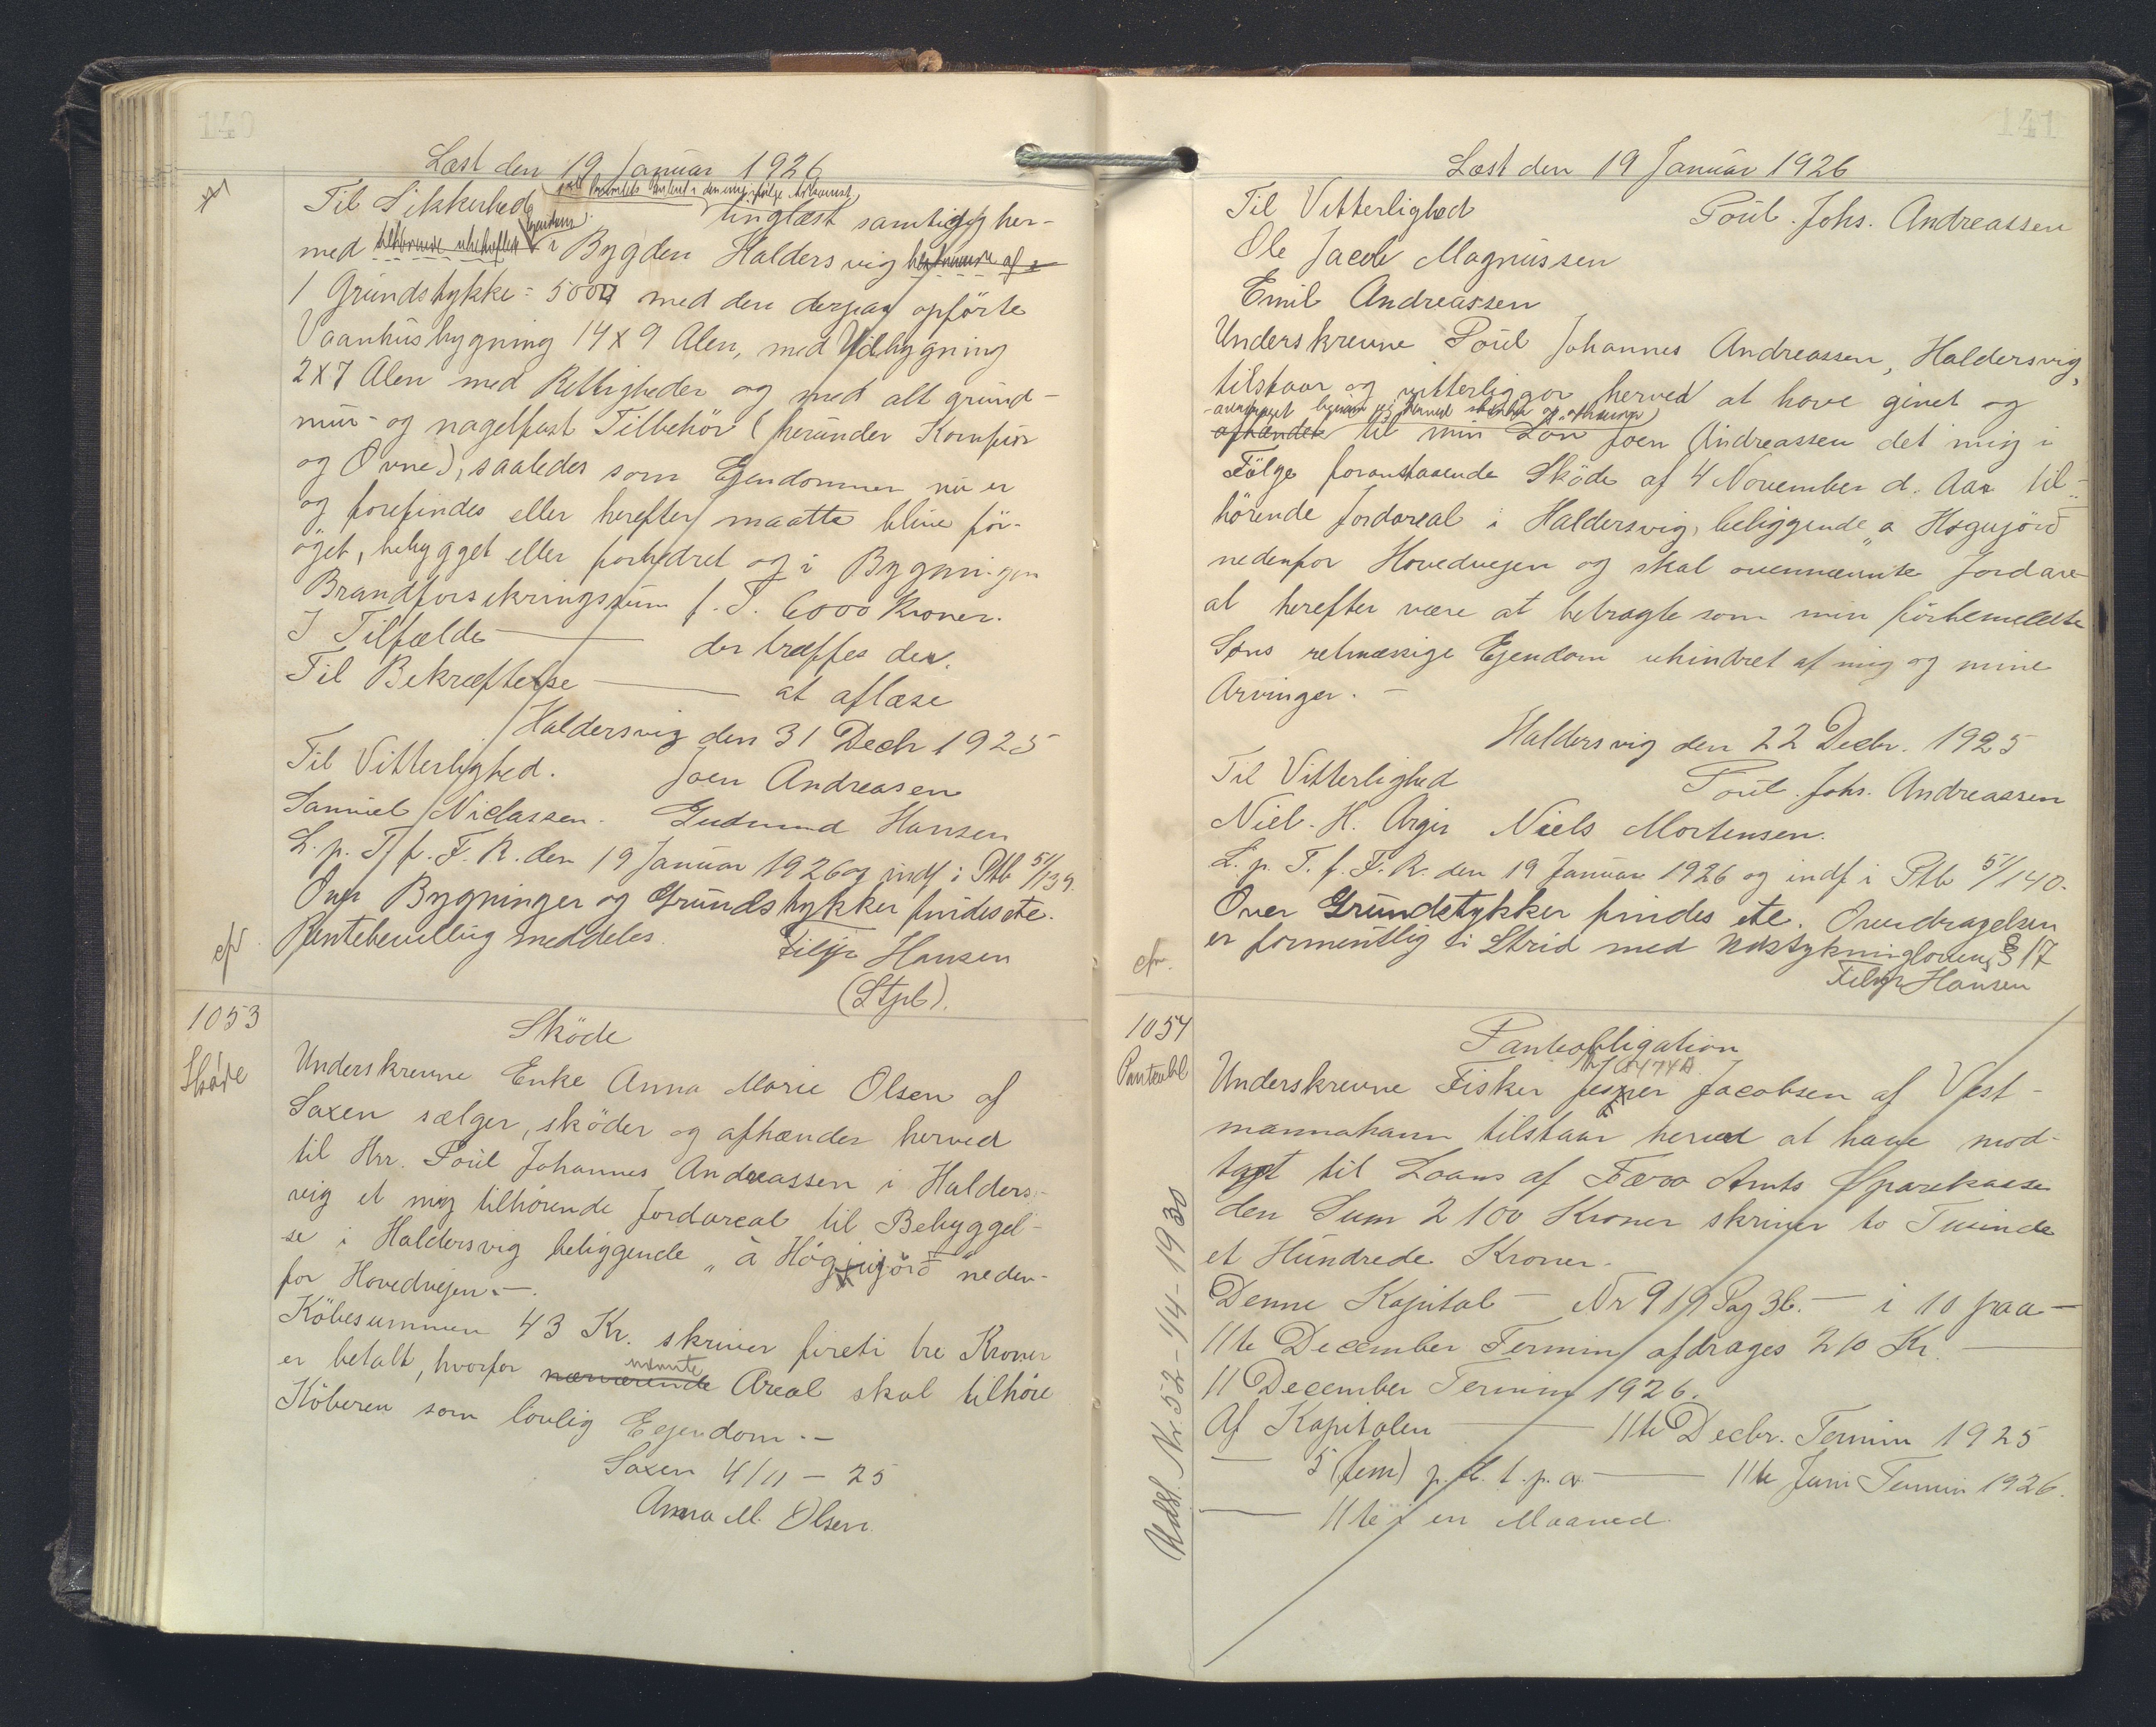 Læst den 19 Januar 1926
Til Sikkerhed tinglæst samtidig her-
med Ejendom i Bygden Haldersvig bestaaende af
1 Grundstykke = 500 med den derpaa opförte
Vaanhusbygning 14 x 9 Alen, med Udbygning
2 x 7 Alen med Rettigheder og med alt grund-
mur- og nagelfast Tilbehör (herunder Komfur
og Ovne), saaledes som Ejendommen nu er
og forefindes eller herefter maatte blive for-
öget, bebygget eller forbedret og i Bygningen
Brandforsikringssum f. T. 6000 Kroner.
I Tilfælde — der træffes den.
Til Bekræftelse — at aflæse
Haldersvig den 31 Decbr 1925
Til Vitterlighed. Joen Andreasen
Samuel Niclassen. Gudmund Hansen
L. p. T. f. F. R. den 19 Januar 1926 og indf i Ptb 5/139.
Over Bygninger og Grundstykker findes ete.
Pantebevilling meddeles. Filip Hansen
(Stpl).
1053
Sköde
Sköde
Underskrevne Enke Anna Marie Olsen af
Saxen sælger, sköder og afhænder herved
til Hrr. Poul Johannes Andreassen i Halders-
vig et mig tilhörende Jordareal til Bebyggel-
se i Haldersvig beliggende „á Högujörð neden-
for Hovedvejen. —
Köbesummen 43 Kr. skriver fireti tre Kroner
er betalt, hvorfor nærværende nævnte Areal skal tilhöre
Köberen som lovlig Ejendom. —
Saxen 4/11 - 25
Anna M. Olsen.
Læst den 19 Januar 1926
Til Vitterlighed Poul. Johs. Andreassen
Ole Jacob Magnussen
Emil Andreassen
Underskrevne Poul Johannes Andreassen, Haldersvig,
tilstaar og vitterliggör herved at have givet og
afhændet til min Sön Joen Andreassen det mig i
Fölge foranstaaende Sköde af 4 November d. Aar til-
hörende Jordareal i Haldersvig, beliggende „a Høgujörð
nedenfor Hovedvejen og skal ovennævnte Jordare-
al herefter være at betragte som min förbemeldte
Söns retmæssige Ejendom uhindret af mig og mine
Arvinger. —
Haldersvig den 22 Decbr. 1925
Til Vitterlighed Poul. Johs. Andreassen
Niel. H. Argir Niels Mortensen.
L. p. T. f. F. R. den 19 Januar 1926 og indf i Ptb 5/140.
Over Grundstykker findes ete. Overdragelsen
er formentlig i Strid med Udstykningslovens § 17
Filip Hansen
1054
Panteobl
Panteobligation
Underskrevne Fisker Jesper Jacobsen af Vest-
mannahavn tilstaar herved at have mod-
taget til Laans af Færø Amts Sparekasse
den Sum 2100 Kroner skriver to Tusinde
et Hundrede Kroner.
Denne Kapital — Nr 919 Pag 36. — i 10 paa —
11te December Termin afdrages 210 Kr. —
11 December Termin 1926.
Af Kapitalen — 11te Decbr. Termin 1925
— 5 (fem) p. Ct. p. a. — 11te Juni Termin 1926.
— 11te i en Maaned.
Udsl. Nr. 52 - 1/4 - 1930